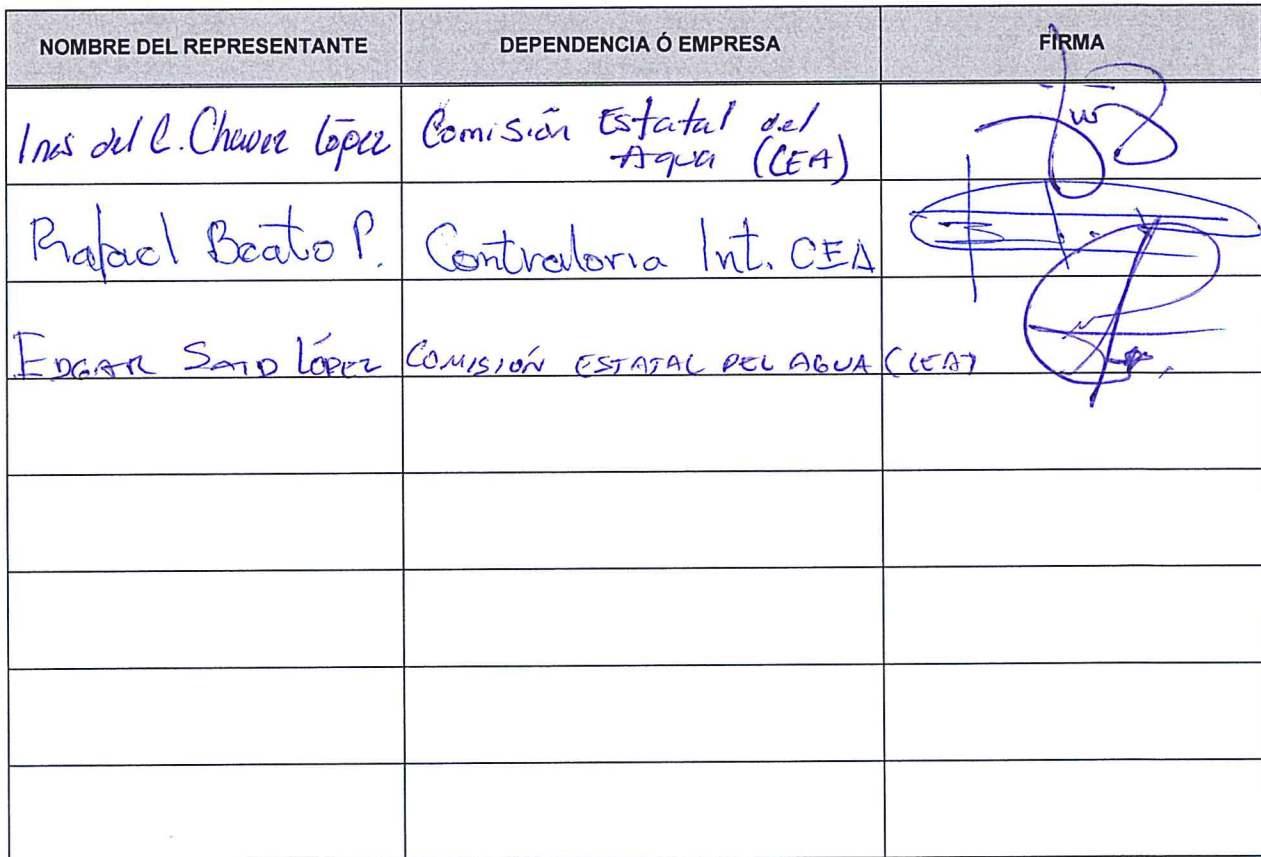 NOMBRE DEL REPRESENTANTE DEPENDENCIA Ó EMPRESA FIRMA
Ines del C. Chavez López Comisión Estatal del
Agua (CEA)
Rafael Beato P. Contraloria Int. CEA
EDGAR SAID LÓPEZ COMISIÓN ESTATAL DEL AGUA (CEA)